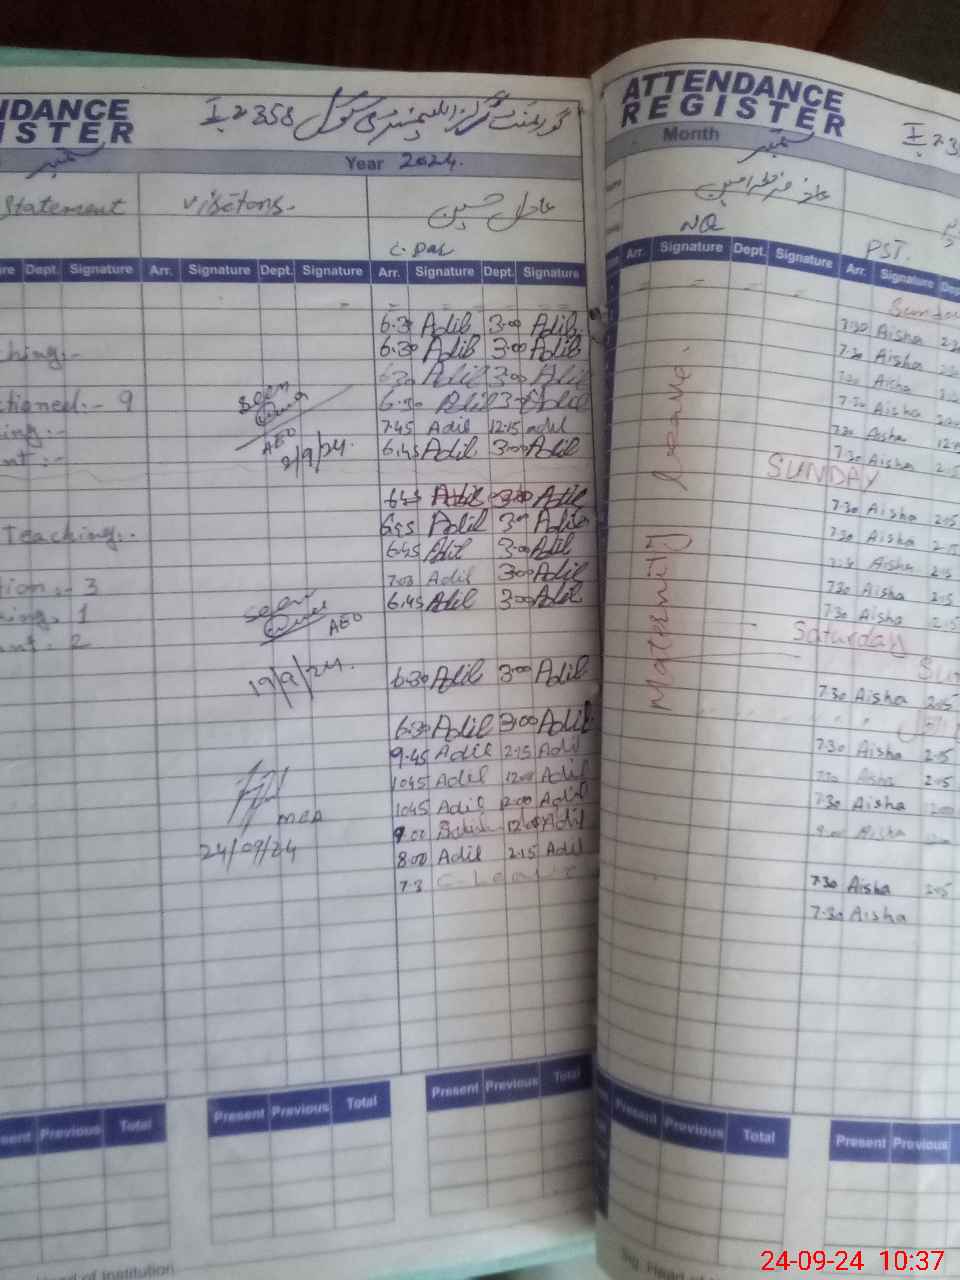 NDANCE
ISTER
I-2358 گورنمنٹ گرلز ایلیمنٹری سکول
ستمبر
Year 2024.
Statement visitors. عادل حسین
C. Dar
re Dept. Signature Arr. Signature Dept. Signature Arr. Signature Dept. Signature
6.30 Adil 3.00 Adil
ching:- 6.30 Adil 3.00 Adil
6.30 Adil 3.00 Adil
ctioned:- 9 Seen 6.30 Adil 3.00 Adil
ing:- AEO 7.45 Adil 12.15 Adil
nt:- 2/9/24 6.45 Adil 3.00 Adil
6.45 Adil 3.00 Adil
Teaching:. 6.45 Adil 3.00 Adil
6.45 Adil 3.00 Adil
tion:- 3 7.00 Adil 3.00 Adil
ing. 1 Seen 6.45 Adil 3.00 Adil
nt. 2 AEO
19/9/24. 6.30 Adil 3.00 Adil
6.30 Adil 3.00 Adil
9.45 Adil 2.15 Adil
1045 Adil 12.00 Adil
MEA 1045 Adil 12.00 Adil
9.00 12.00 Adil
24/09/24 8.00 Adil 2.15 Adil
7.3 C-Leave
Present Previous Total Present Previous Total
sent Previous Total
Head of Institution
ATTENDANCE
REGISTER
I-235
Month ستمبر
NQ PST.
Arr. Signature Dept. Signature Arr. Signature Dep
Sunday
7.30 Aisha
7.30 Aisha
7.30 Aisha
7.30 Aisha
7.30 Aisha
7.30 Aisha 2.15
SUNDAY
7.30 Aisha 2.15
7.30 Aisha 2.15
7.30 Aisha 2.15
7.30 Aisha 2.15
7.30 Aisha 2.15
Saturday
7.30 Aisha 2.15
7.30 Aisha 2.15
7.30 Aisha 2.15
7.30 Aisha
8.00 Aisha
7.30 Aisha 2.15
7.30 Aisha
Maternity Leave.
Present Previous Total Present Previous
24-09-24 10:37